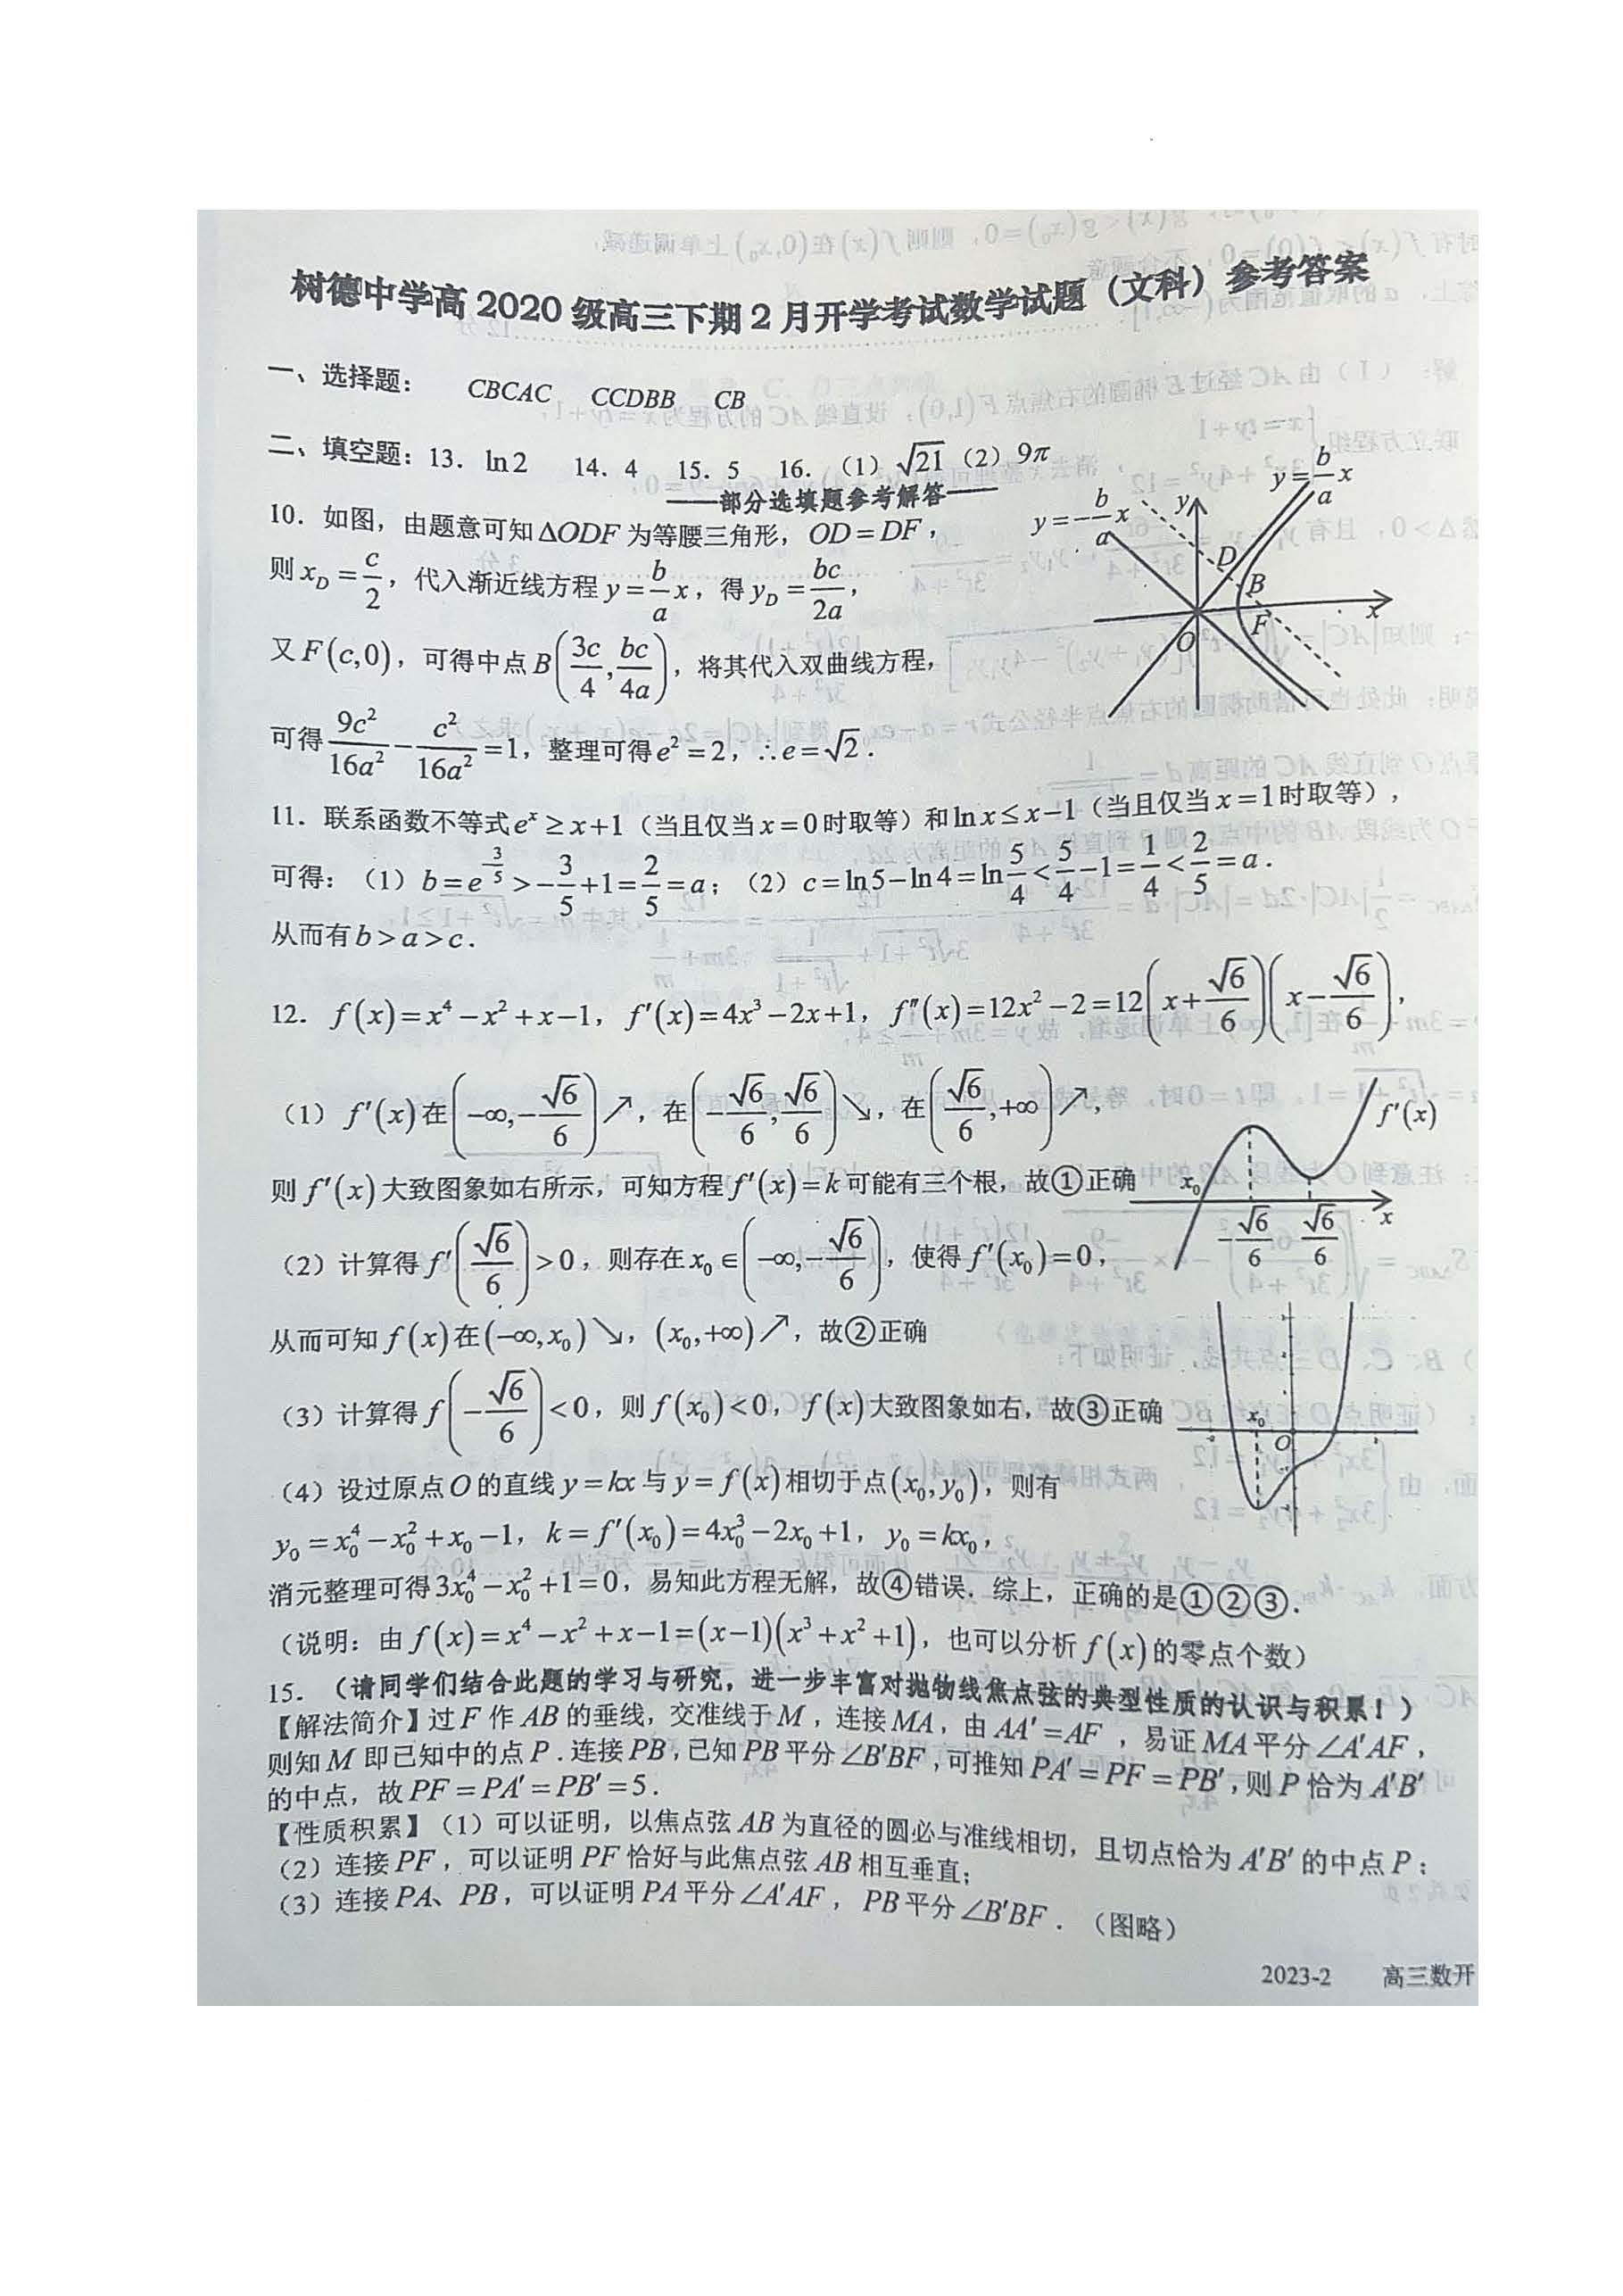 树德中学高2020级高三下期2月开学考试数学试题（文科）参考答案
一、选择题： CBCAC CCDBB CB
二、填空题：13．ln2 14．4 15．5 16．（1）√21（2）9π
——部分选填题参考解答——
10．如图，由题意可知ΔODF为等腰三角形，OD=DF，
则x_D=c/2，代入渐近线方程y=b/a x，得y_D=bc/2a，
又F(c,0)，可得中点B(3c/4, bc/4a)，将其代入双曲线方程，
可得9c²/16a²-c²/16a²=1，整理可得e²=2，∴e=√2．
y=-b/a x
y
y=b/a x
D
B
x
O
F
11．联系函数不等式eˣ≥x+1（当且仅当x=0时取等）和ln x≤x-1（当且仅当x=1时取等），
可得：（1）b=e^(-3/5)>-3/5+1=2/5=a；（2）c=ln5-ln4=ln 5/4<5/4-1=1/4<2/5=a．
从而有b>a>c．
12．f(x)=x⁴-x²+x-1，f′(x)=4x³-2x+1，f″(x)=12x²-2=12(x+√6/6)(x-√6/6)，
（1）f′(x)在(-∞,-√6/6)↗，在(-√6/6,√6/6)↘，在(√6/6,+∞)↗，
则f′(x)大致图象如右所示，可知方程f′(x)=k可能有三个根，故①正确
f′(x)
x₀
x
-√6/6
√6/6
（2）计算得f′(√6/6)>0，则存在x₀∈(-∞,-√6/6)，使得f′(x₀)=0，
从而可知f(x)在(-∞,x₀)↘，(x₀,+∞)↗，故②正确
（3）计算得f(-√6/6)<0，则f(x₀)<0，f(x)大致图象如右，故③正确
x₀
O
（4）设过原点O的直线y=kx与y=f(x)相切于点(x₀,y₀)，则有
y₀=x₀⁴-x₀²+x₀-1，k=f′(x₀)=4x₀³-2x₀+1，y₀=kx₀，
消元整理可得3x₀⁴-x₀²+1=0，易知此方程无解，故④错误．综上，正确的是①②③．
（说明：由f(x)=x⁴-x²+x-1=(x-1)(x³+x²+1)，也可以分析f(x)的零点个数）
15．（请同学们结合此题的学习与研究，进一步丰富对抛物线焦点弦的典型性质的认识与积累！）
【解法简介】过F作AB的垂线，交准线于M，连接MA，由AA′=AF，易证MA平分∠A′AF，
则知M即已知中的点P．连接PB，已知PB平分∠B′BF，可推知PA′=PF=PB′，则P恰为A′B′
的中点，故PF=PA′=PB′=5．
【性质积累】（1）可以证明，以焦点弦AB为直径的圆必与准线相切，且切点恰为A′B′的中点P；
（2）连接PF，可以证明PF恰好与此焦点弦AB相互垂直；
（3）连接PA、PB，可以证明PA平分∠A′AF，PB平分∠B′BF．（图略）
2023-2 高三数开